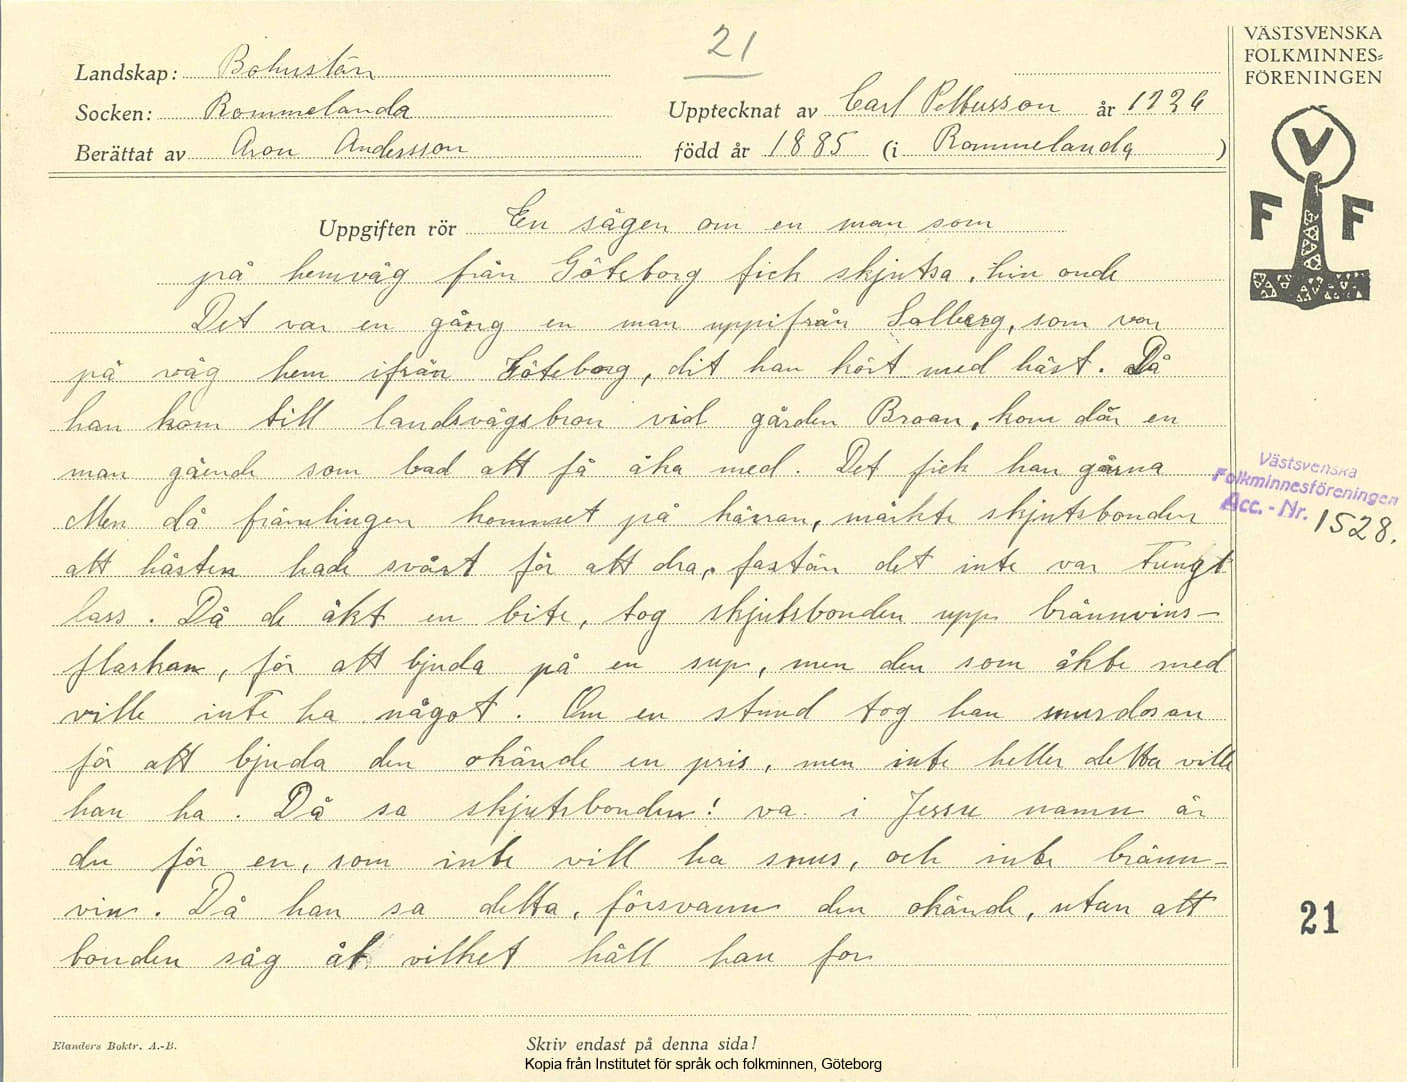 21
Landskap: Bohuslän
Socken: Rommelanda
Upptecknat av Carl Pettersson år 1926
Berättat av Aron Andersson
född år 1885 (i Rommelanda)
VÄSTSVENSKA
FOLKMINNES=
FÖRENINGEN
V
F F
Uppgiften rör En sägen om en man som
på hemväg från Göteborg fick skjutsa hin onde
Det var en gång en man uppifrån Solberg, som var
på väg hem ifrån Göteborg, dit han kört med häst. Då
han kom till landsvägsbron vid gården Broan, kom där en
man gående som bad att få åka med. Det fick han gärna
Men då främlingen kommet på kärran, märkte skjutsbonden
att hästen hade svårt för att dra, fastän det inte var tungt
lass. Då de åkt en bite, tog skjutsbonden upp brännvins-
flaskan, för att bjuda på en sup, men den som åkte med
ville inte ha något. Om en stund tog han snusdosan
för att bjuda den okände en pris, men inte heller detta ville
han ha. Då sa skjutsbonden: va i Jessu namn är
du för en, som inte vill ha snus, och inte bränn-
vin. Då han sa detta, försvann den okände, utan att
bonden såg åt vilket håll han for
Västsvenska
Folkminnesföreningen
Acc. - Nr. 1528.
21
Elanders Boktr. A.-B.
Skriv endast på denna sida!
Kopia från Institutet för språk och folkminnen, Göteborg